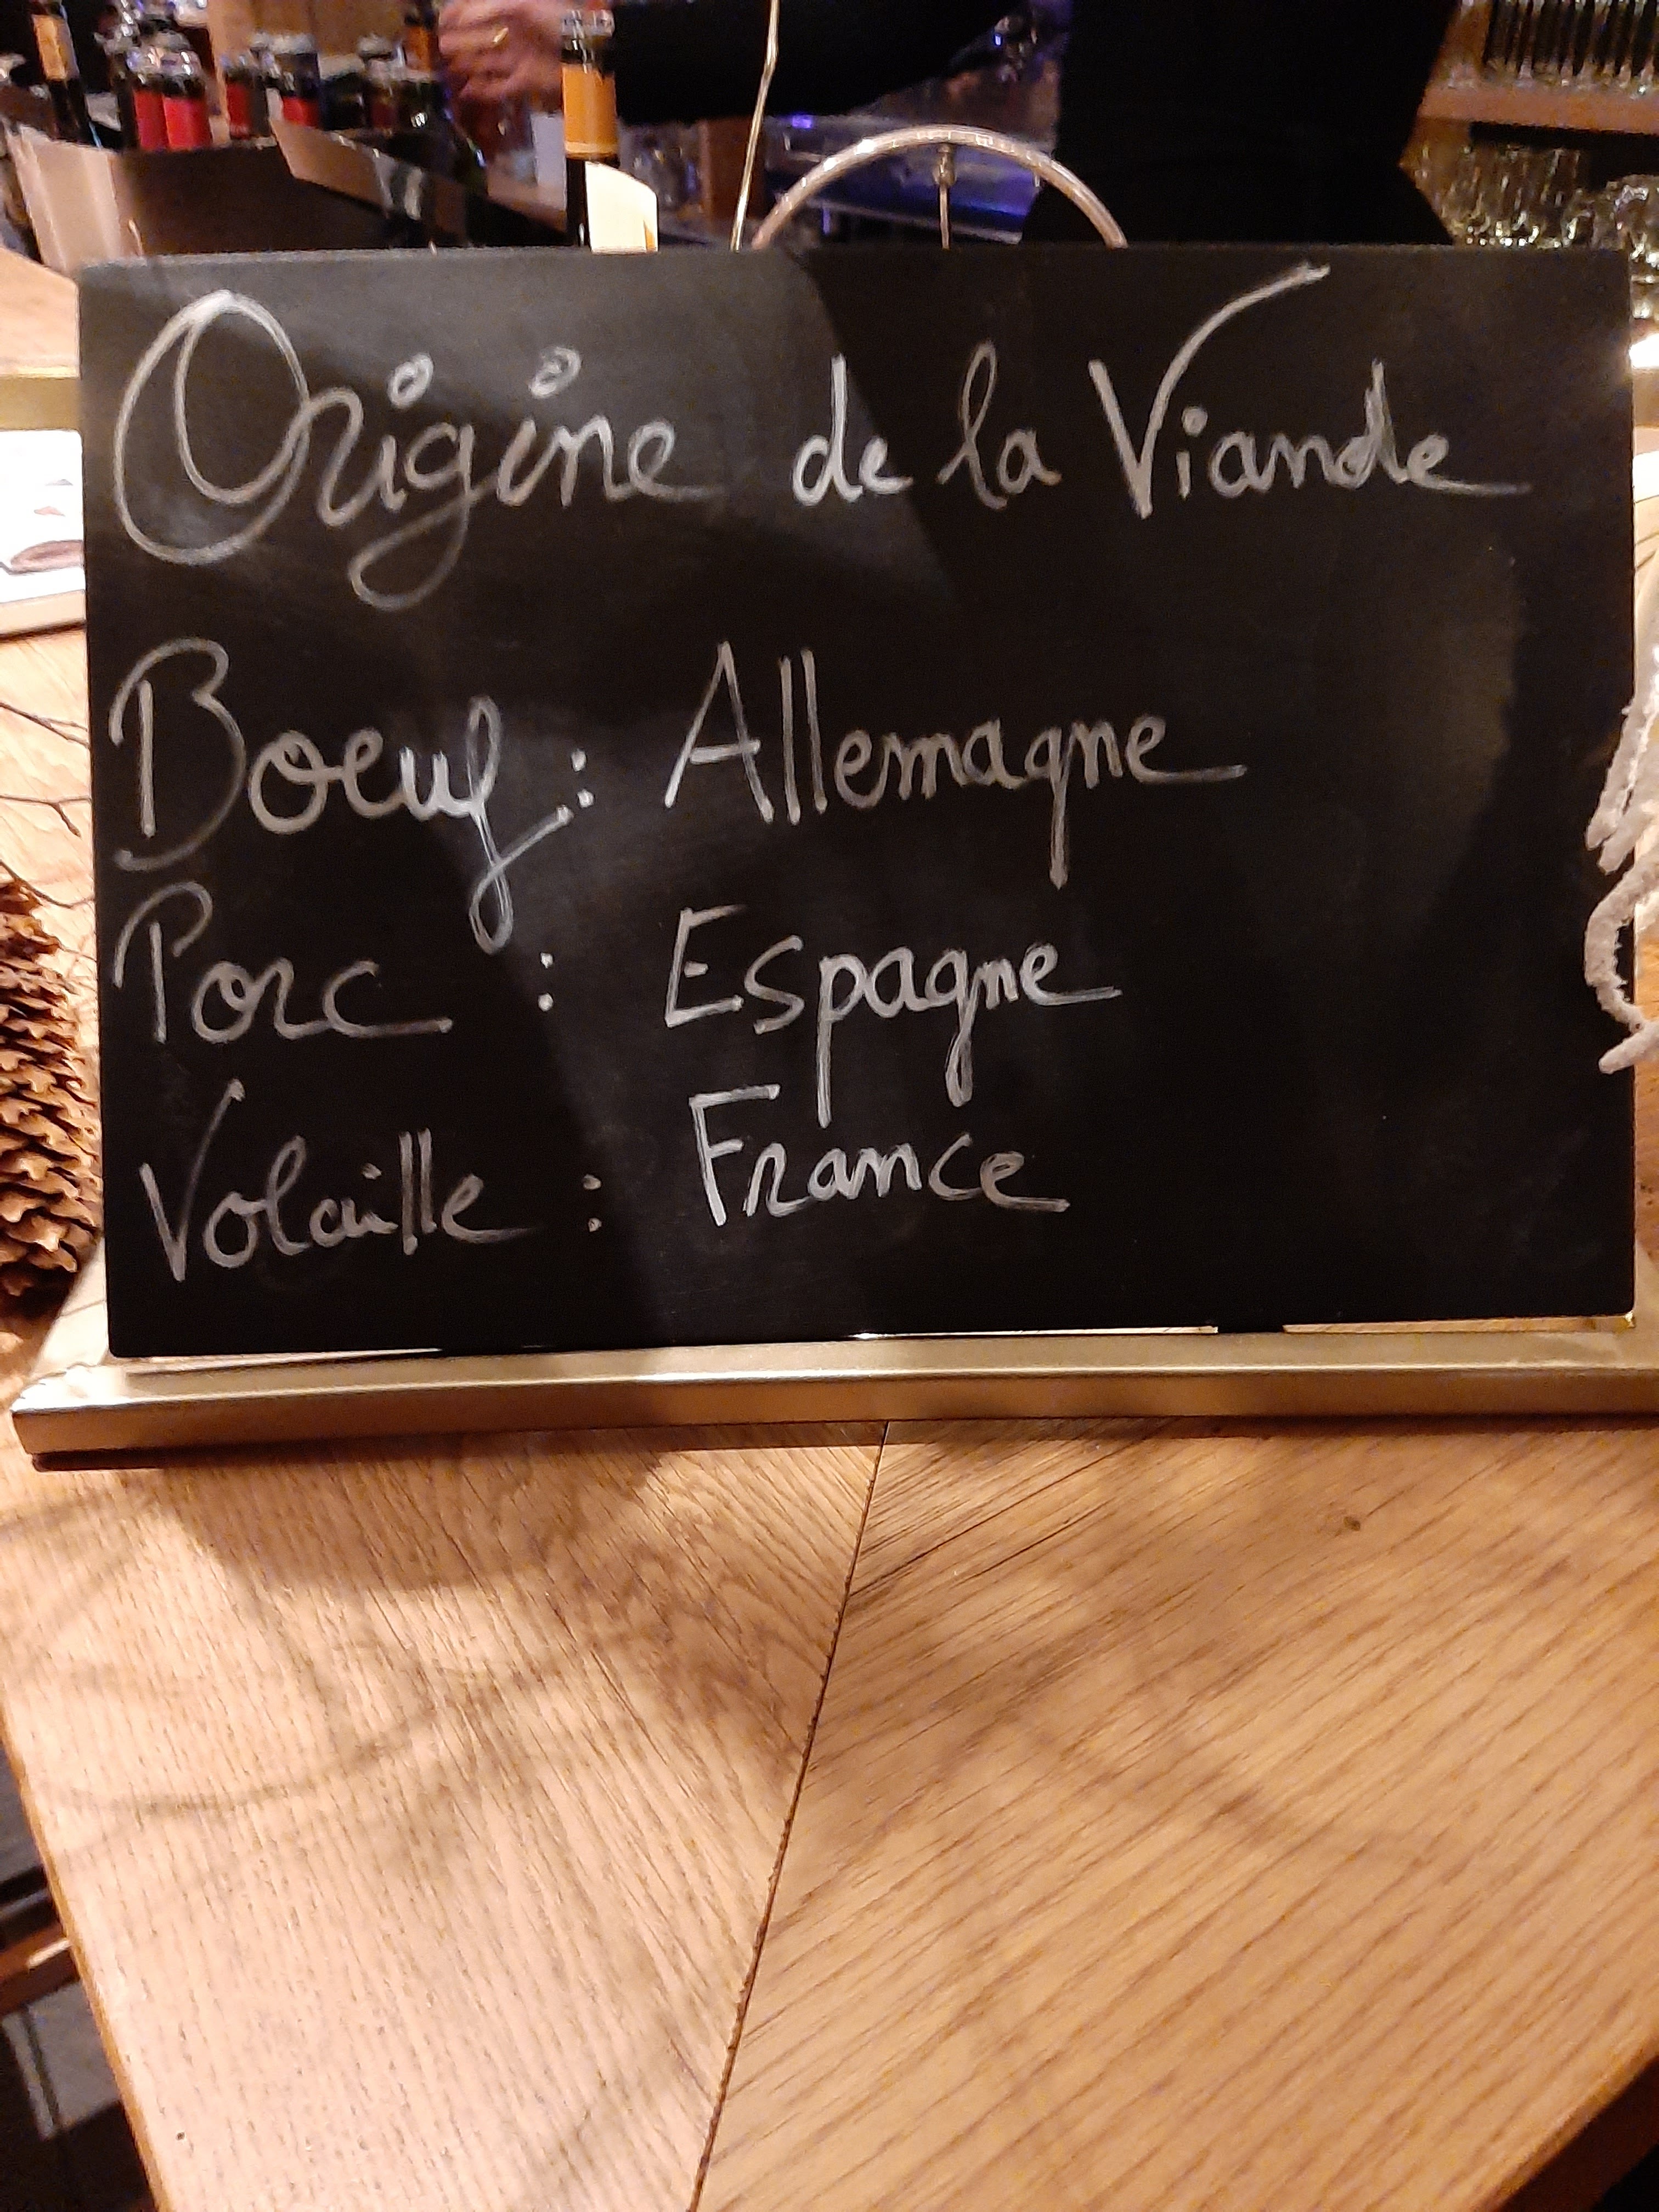 Origine de la Viande
Boeuf : Allemagne
Porc : Espagne
Volaille : France